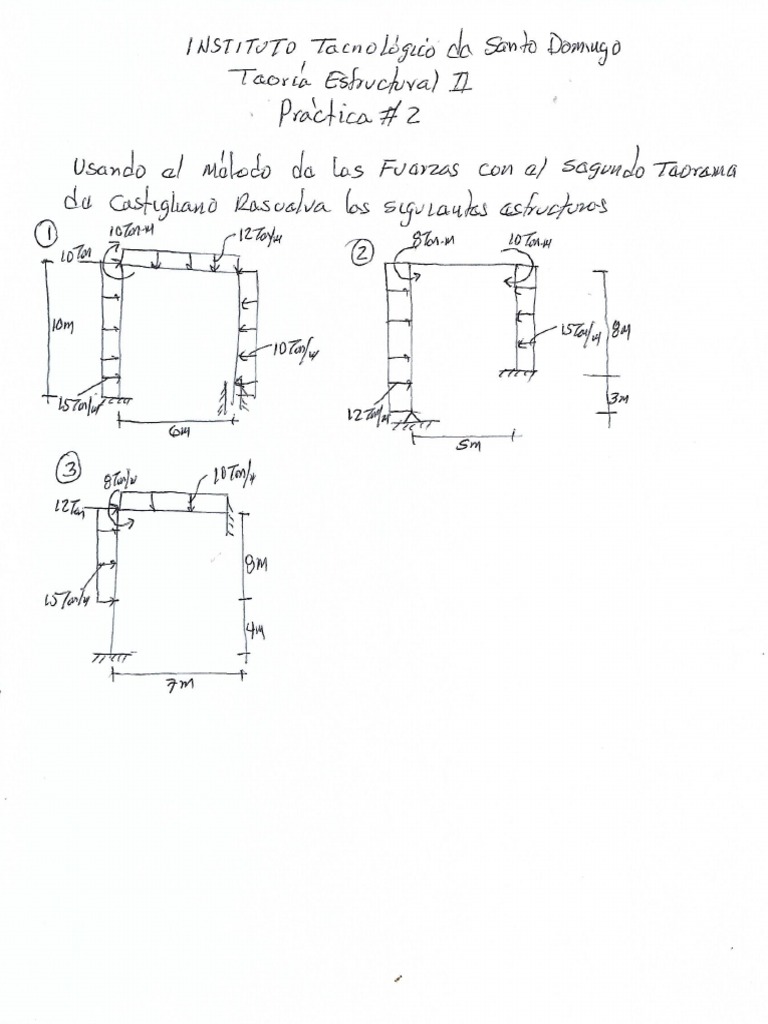 INSTITUTO Tecnológico de Santo Domingo
Teoría Estructural II
Práctica #2
Usando el método de las Fuerzas con el segundo Teorema
de Castigliano Resuelva las siguientes estructuras
1
10Ton-M
12Ton/M
10Ton
10M
10Ton/M
15Ton/M
6M
2
8Ton-M
10Ton-M
15Ton/M
8M
12Ton/M
3M
5M
3
8Ton/M
10Ton/M
12Ton
8M
15Ton/M
4M
7M